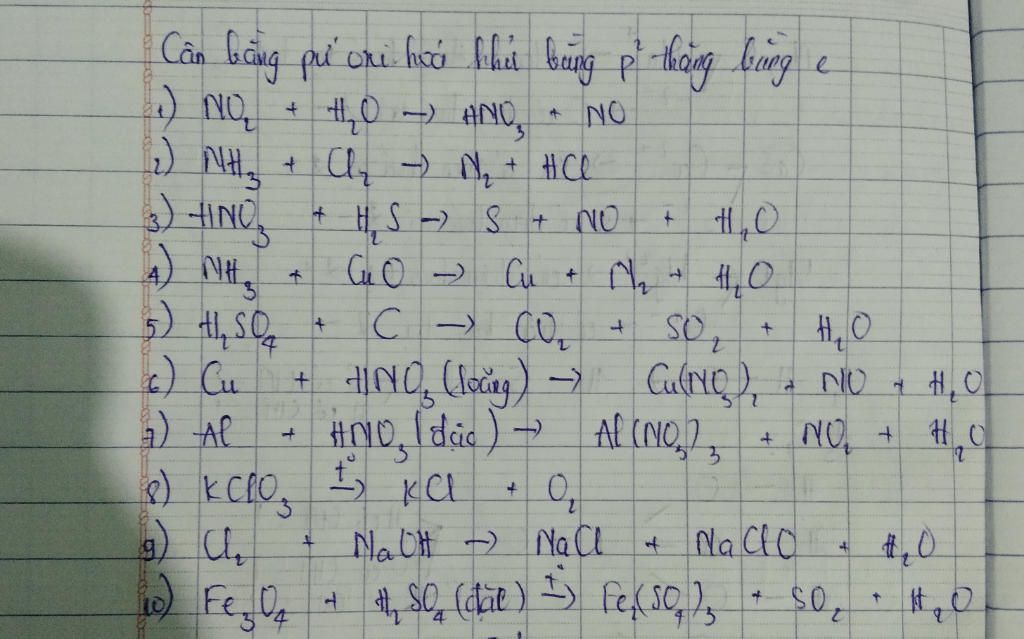 Cân bằng pứ oxi hoá khử bằng p² thăng bằng e
1) NO₂ + H₂O → HNO₃ + NO
2) NH₃ + Cl₂ → N₂ + HCl
3) HNO₃ + H₂S → S + NO + H₂O
4) NH₃ + CuO → Cu + N₂ + H₂O
5) H₂SO₄ + C → CO₂ + SO₂ + H₂O
6) Cu + HNO₃ (loãng) → Cu(NO₃)₂ + NO + H₂O
7) Al + HNO₃ (đặc) → Al(NO₃)₃ + NO₂ + H₂O
8) KClO₃ t° → KCl + O₂
9) Cl₂ + NaOH → NaCl + NaClO + H₂O
10) Fe₃O₄ + H₂SO₄ (đặc) t° → Fe₂(SO₄)₃ + SO₂ + H₂O